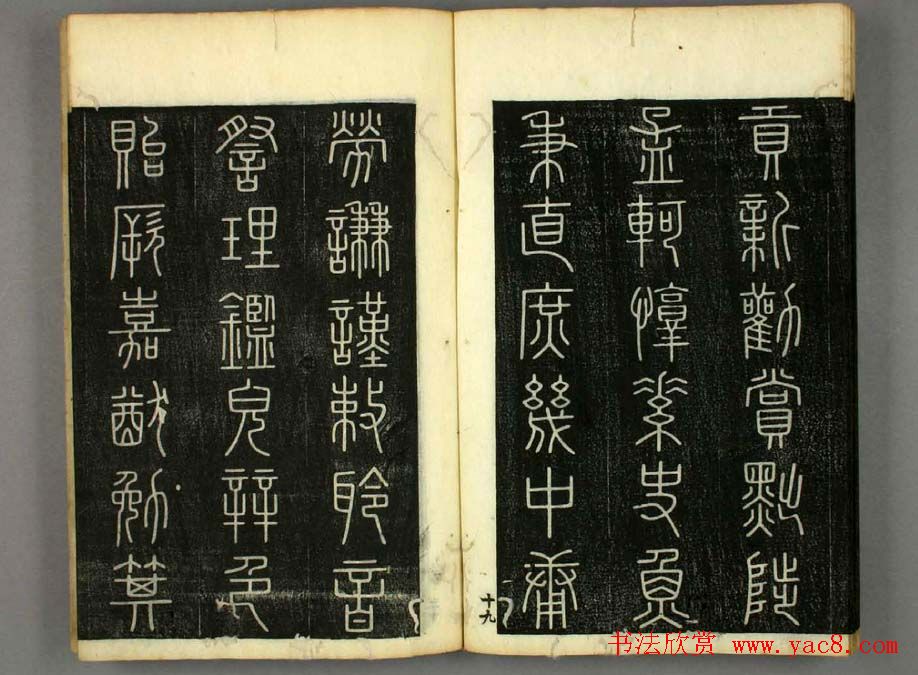 貢新勸賞黜陟
孟軻惇素史魚
秉直庶幾中庸
勞謙謹敕聆音
察理鑑皃辯色
貽厥嘉猷勉其
十九
书法欣赏 www.yac8.com